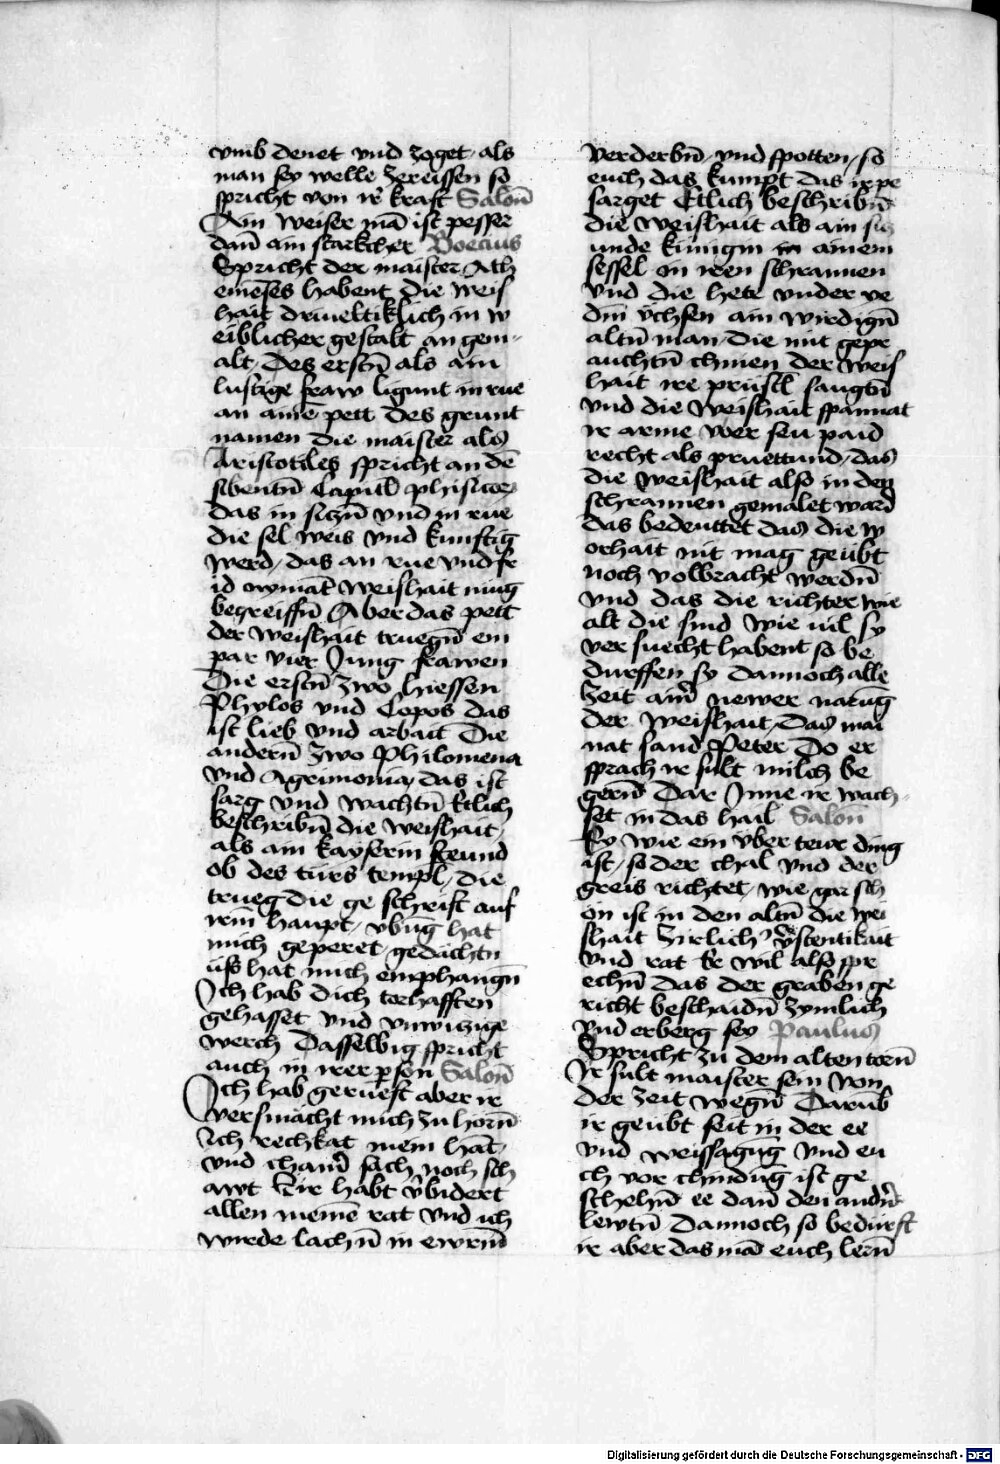 vmb denet vnd zoget als
man sey welle zereissen so
spricht von ir kraft Salon̄
Ain weiser mā ist pesser
dan̄ ain starkcher Boecius
Spricht der maister Ath
enieses habent die weis
hait driveltiklich in w
eiblicher gestalt an gem
alt Des erstn̄ als ain
lustige fraw ligunt in rue
an aine pett des grunt
namen die maister als
Aristotiles spricht an dē
sibentn̄ Capitl phisicor
das in siczn̄ vnd in rue
die sel weis vnd kunftig
werd das an rue vnd fr
id nymāt weishait mug
begreiffn̄ Aber das pett
der weishait truegn̄ em
par vier Jung frawen
Die erstn̄ zwo hiessen
Phylos vnd Copos das
ist lieb vnd arbait Die
andern̄ zwo Philomena
vnd Agrimonia das ist
sarg vnd wachtn̄ Etlich
beschribn̄ die weishait
als ain kayserin freund
ob des turs templ die
trueg die ge schrift auf
irm haupt vbūg hat
mich geperet gedachtn
uss hat mich emphangn̄
Ich hab dich torhafften
gehasset vnd vnwiczige
werch Dasselbig spricht
auch in irer pson Salon̄
Ich hab geruest aber ir
versmächt mich zu horn̄
Ich rechkat mein hāt
vnd chain̄ sach noch sch
awt Er habt v̄bidert
allen meinē rat vnd ich
wirde lachn̄ in ewrm̄
verderbn̄ vnd spotten so
euch das kumpt das ir pe
sarget Etlich beschribn̄
die weishait als ain
unde kunigin in ainem
sessel in iren schrannen
vnd die hete vnder ye
din v̈chsen ain wirdign̄
altn̄ man die mit gepr
auchtn̄ chinen der weis
hait ire prüstl saugtn̄
vnd die weishait spannat
ir arme vber seu paid
recht als pruettund das
die weishait also in den
schrannen gemalet ward
das bedeuttet das die w
orhait nit mag geübt
noch volbracht werdn̄
vnd das die richter wie
alt die sind wie uil sy
ver suecht habent so be
durffen sy dannoch alle
zeit ain̄ newer narūg
der weishait Das mai
nat sand Peter Do er
sprach ir sult milch be
gern̄ Dar Inne ir wach
set in das hail Salon
Ey wie ein v̈ber tewr ding
ist so der chal vnd der
greis richtet wie gar sch
on ist in den altn̄ die wei
shait zirlich v̄stentikait
vnd rat Er wil also spr
echn̄ das der graben ge
richt beschaidn̄ zymlich
vnd erberg sey Paulus
Spricht zu dem alten
Ir sult maister sein von
der zeit wegn̄ Darūb
ir geübt seit in der ee
vnd weissagūg vnd eu
ch vor chundūg ist ge
schehn̄ ee dan̄ den andn̄
lewtn̄ Dannoch so bedürft
ir aber das mā euch lern̄
Digitalisierung gefördert durch die Deutsche Forschungsgemeinschaft - DFG